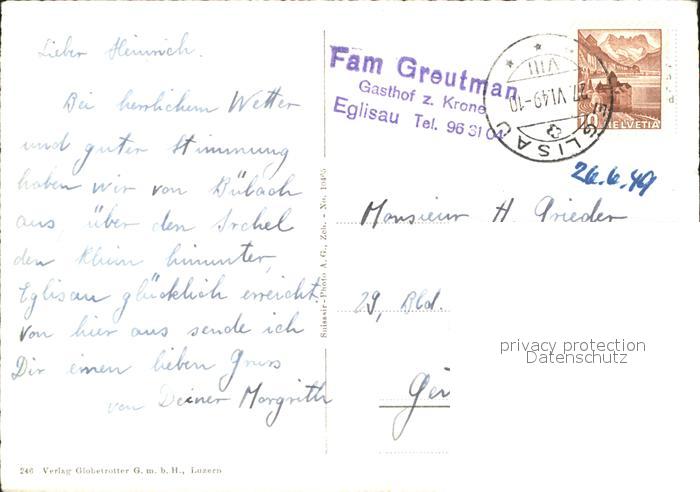 Lieber Heinrich.
Bei herrlichem Wetter
und guter Stimmung
haben wir von Bülach
aus, über den Irchel
den Rhein hinunter,
Eglisau glücklich erreicht.
Von hier aus sende ich
Dir einen lieben Gruss
von Deiner Margrith
246 Verlag Globetrotter G. m. b. H., Luzern
Swissair-Photo A. G., Zch. - No.
Fam Greutman
Gasthof z. Krone
Eglisau Tel. 96 31 04
VIII
27.VI.49-10
EGLISAU
10 HELVETIA
26.6.49
Monsieur H. Prieder
29, Bld.
privacy protection
Datenschutz